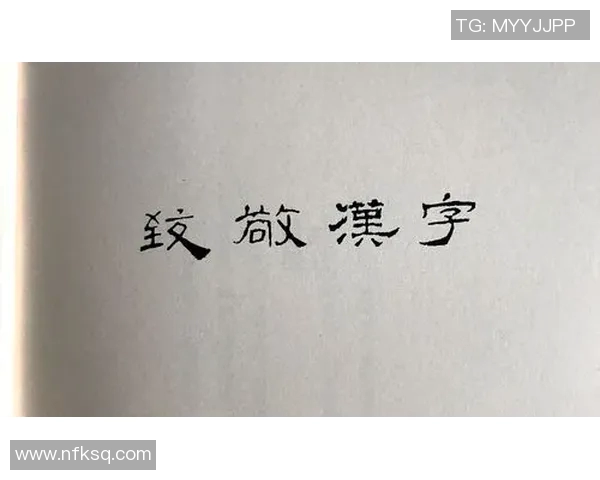 TG: MYYJJPP
致敬漢字
www.nfksq.com